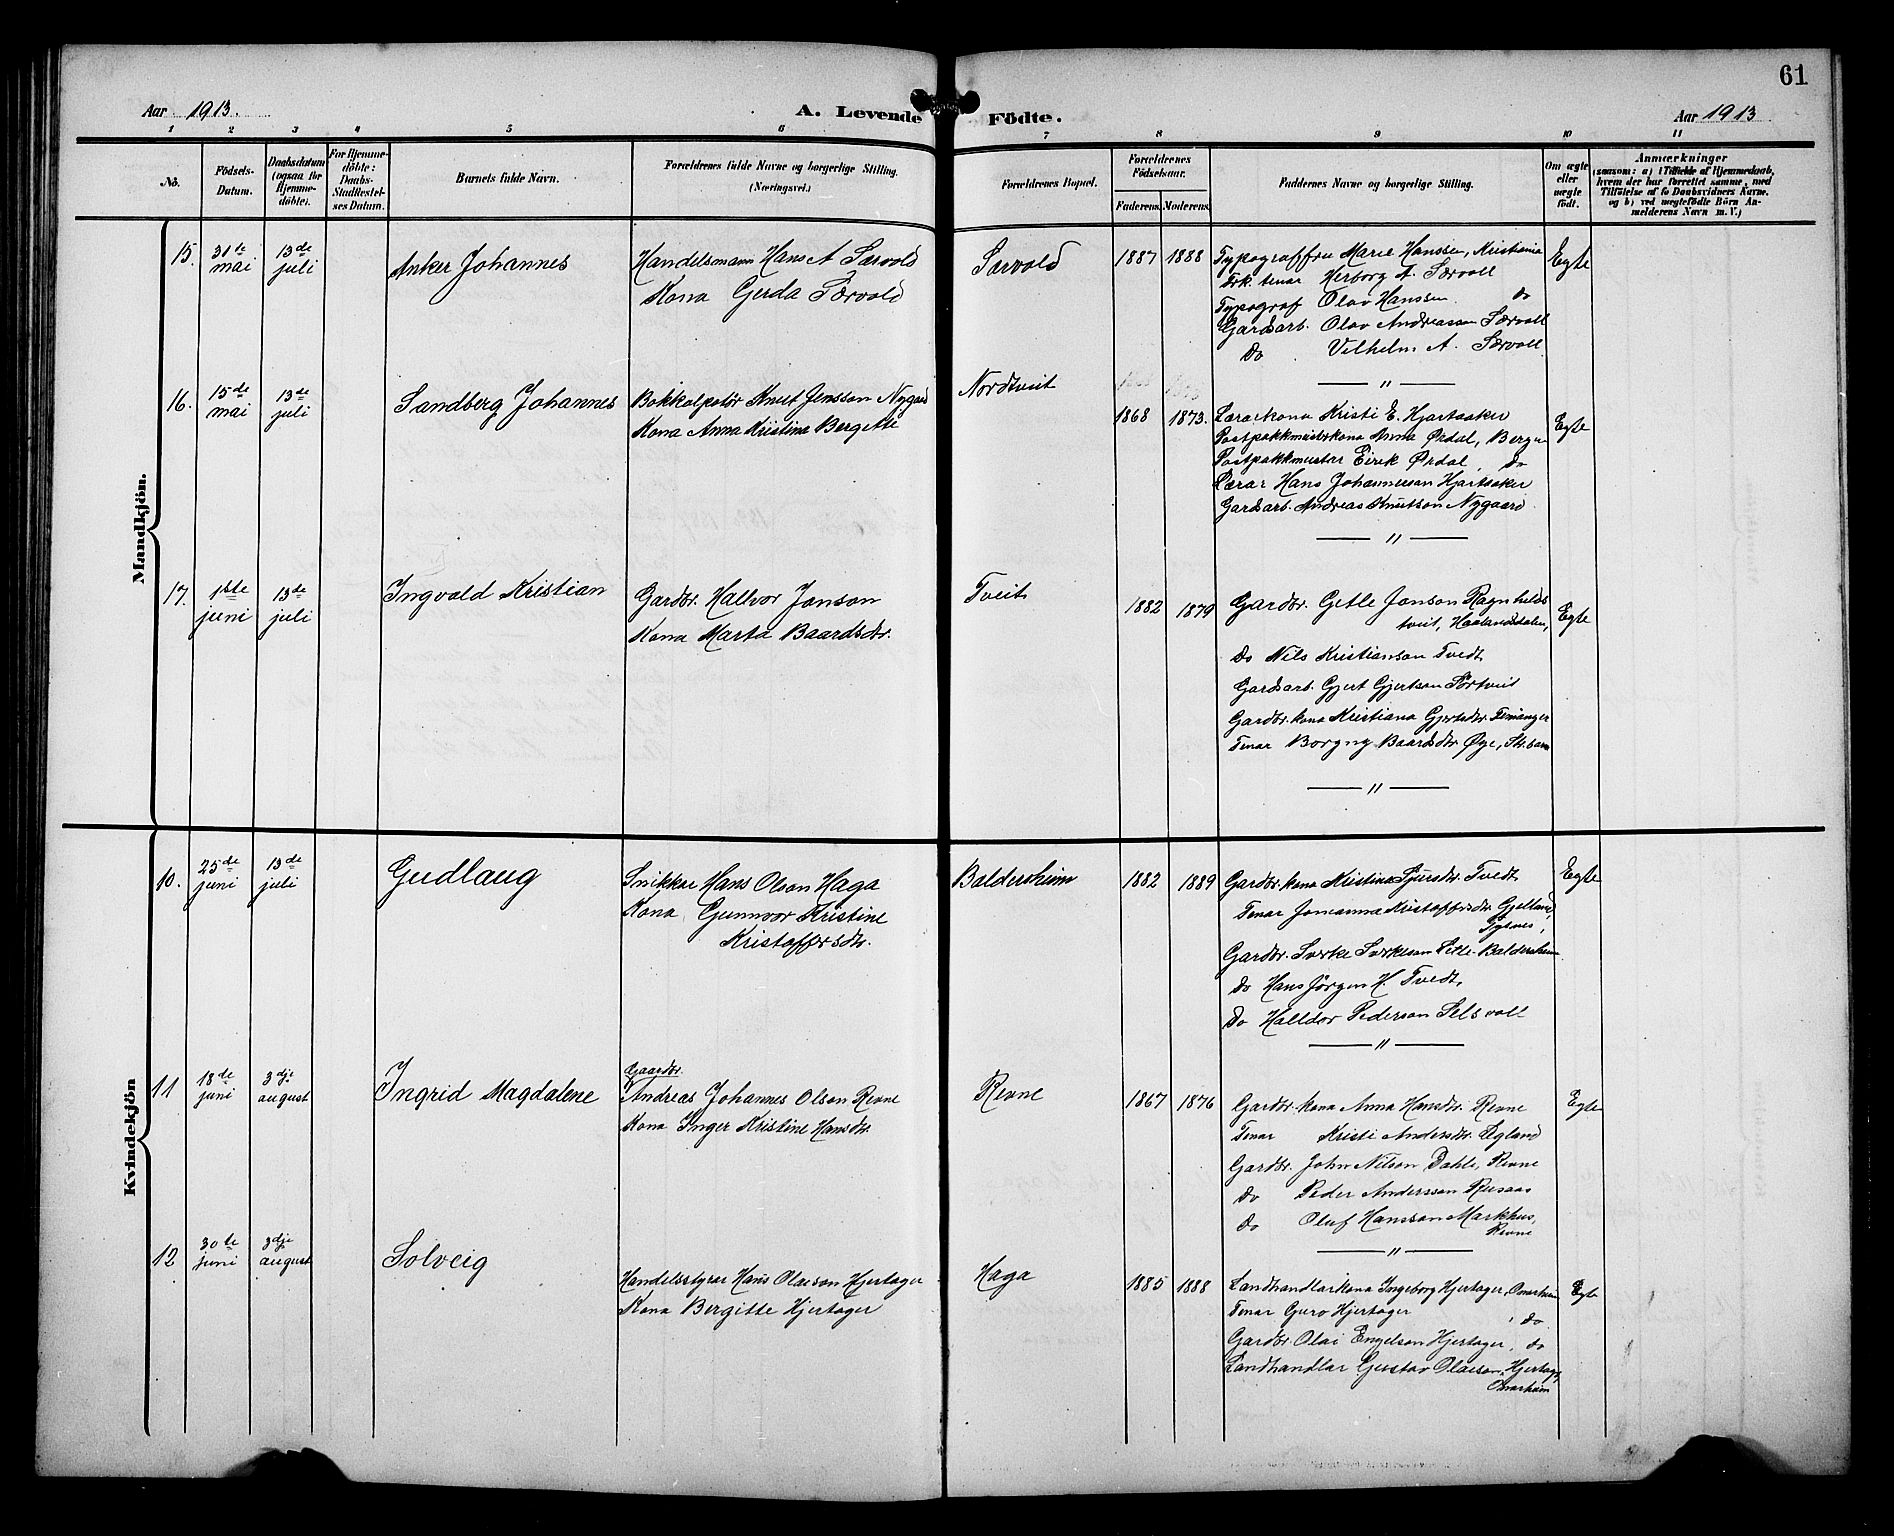 61
Aar 1913.
A. Levende Födte.
Aar 1913.
1 2 3 4 5 6 7 8 9 10 11
No.
Födsels-Datum.
Daabsdatum (ogsaa for Hjemme-döbte).
For Hjemme-döbte: Daabs-Stadfæstel-ses Datum.
Barnets fulde Navn.
Forældrenes fulde Navne og borgerlige Stilling. (Næringsvei.)
Forældrenes Bopæl.
Forældrenes Födselsaar.
Faderens. Moderens.
Faddernes Navne og borgerlige Stilling.
Om ægte eller uægte födt.
Anmærkninger
(saasom: a) i Tilfælde af Hjemmedaab,
hvem der har forrettet samme, med
Tilföielse af to Daabsvidners Navne,
og b) ved uægtefödte Börn An-
melderens Navn m. V.)
Mandkjön.
15. 31te mai 13de juli
Anker Johannes
Handelsmann Hans A Særvold
Kona Gerda Særvold
Særvold
1887 1888
Typograffru Marie Hanssen, Kristiania
Frk. tenar Herborg A. Særvoll
Typograf Olav Hanssen do
Gardsarb. Olav Andreassen Særvoll
Do Vilhelm A. Særvoll
Egte
— " —
16. 15de mai 13de juli
Sandberg Johannes
Bokkolpotør Knut Jensson Nygard
Kona Anna Kristina Bergette
Nordtveit
1868 1873.
Lærarkona Kristi E. Hjartaaker
Postpakkmeisterkona Anna Ørdal, Bergen
Postpakkmeister Eirik Ørdal, do
Lærar Hans Johannesson Hjartaaker
Gardsarb. Andreas Knutson Nygaard.
Egte
— " —
17. 1ste juni 13de juli
Ingvald Kristian
Gardbr. Hallvor Janson
Kona Marta Baardsdtr.
Tveit
1882 1879
Gardbr. Getle Janson Ragnhilds
tveit, Haalandsdalen,
Do Nils Kristianson Tvedt
Gardsarb. Gjert Gjertson Sørtveit
Gardbr. kona Kristiana Gjertsdtr. Femanger
Tenar Borgny Baardsdtr. Øye, Strbarm
Egte
— " —
Kvindekjön
10. 25de juni 13de juli
Gudlaug
Snikkar Hans Olson Haga
Kona Gunnvor Kristine
Kristoffersdtr.
Baldersheim
1882 1889
Gardbr. kona Kristina Sjursdtr. Tvedt
Tenar Johanna Kristoffersdtr. Gjelland,
Tysnes,
Gardbr. Sverke Sverkeson Vetle-Baldersheim
Do Hans Jörgen H. Tvedt,
Do Halldor Pederson Selsvoll
Egte
— " —
11 18de juni 3dje august
Ingrid Magdalene
Gaardbr.
Andreas Johannes Olson Revne
Kona Inger Kristine Hansdtr.
Revne
1867 1876
Gardbr. kona Anna Hansdtr. Revne
Tenar Kristi Andersdtr. Legland
Gardbr. John Nilson Dahle, Revne
do Peder Andersson Rusaas
do Oluf Hansson Markhus,
Revne
Egte
— " —
12 30te juni 3dje august
Solveig
Handelsstyrar Hans Olaeson Hjertager
Kona Bergitte Hjertager
Haga
1885 1888
Landhandlarkona Ingeborg Hjertager, Omarheim
Tenar Guro Hjertager, do
Gardbr. Olai Engelson Hjertager, do
Landhandlar Gustav Olaeson Hjertager,
Omarheim
Egte